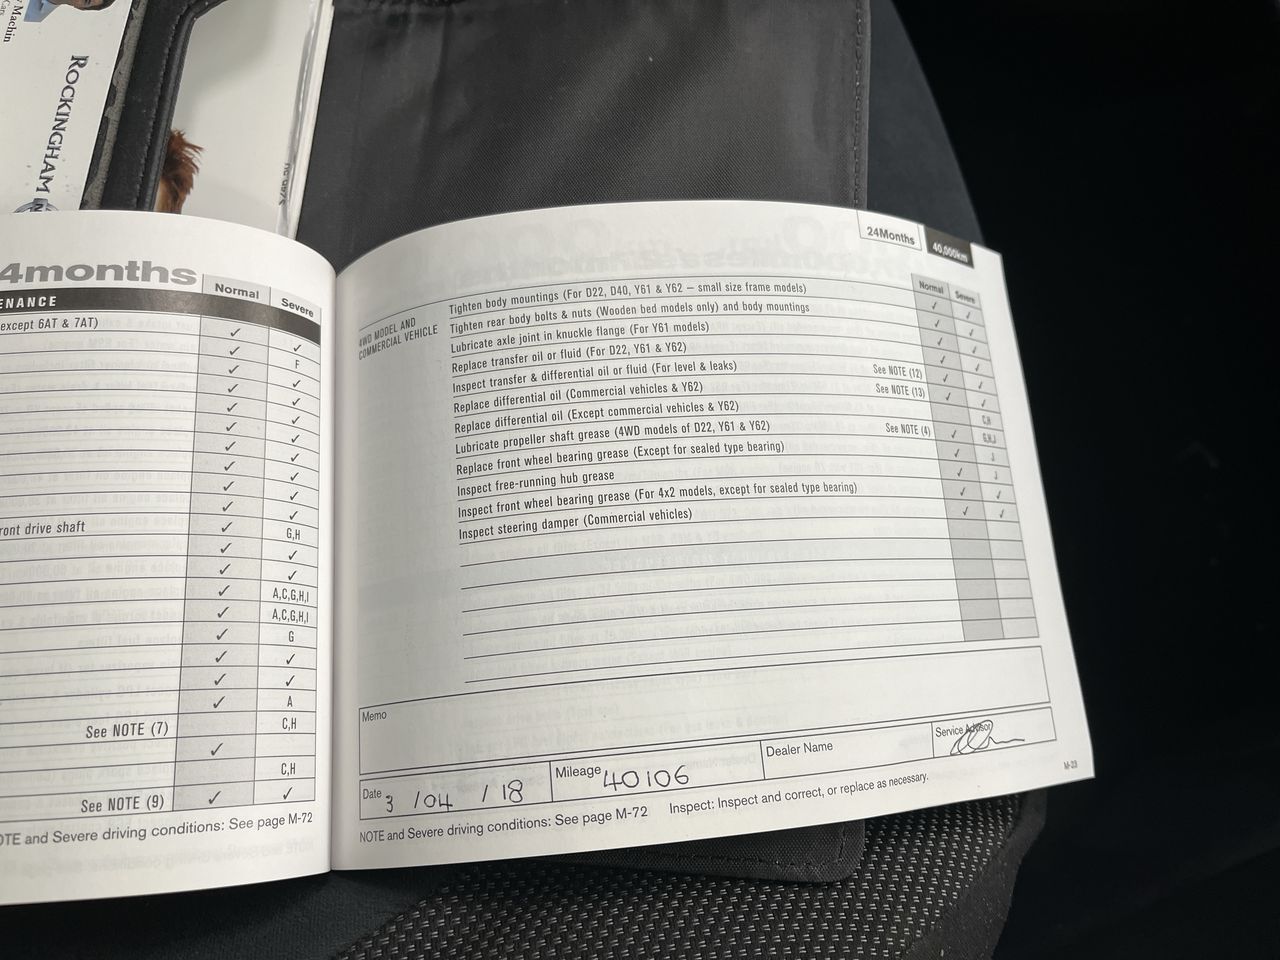 Machin
ROCKINGHAM
4months
Normal
Severe
ENANCE
except 6AT & 7AT)
✓ ✓
✓ F
✓ ✓
✓ ✓
✓ ✓
✓ ✓
✓ ✓
✓ ✓
✓ ✓
✓ ✓
ront drive shaft ✓ G,H
✓ ✓
✓ ✓
✓ A,C,G,H,I
✓ A,C,G,H,I
✓ G
✓ ✓
✓ ✓
✓ A
See NOTE (7) C,H
✓
C,H
See NOTE (9) ✓ ✓
OTE and Severe driving conditions: See page M-72
24Months
40,000km
Normal
Severe
4WD MODEL AND
COMMERCIAL VEHICLE
Tighten body mountings (For D22, D40, Y61 & Y62 – small size frame models)
Tighten rear body bolts & nuts (Wooden bed models only) and body mountings
Lubricate axle joint in knuckle flange (For Y61 models)
Replace transfer oil or fluid (For D22, Y61 & Y62)
Inspect transfer & differential oil or fluid (For level & leaks)
Replace differential oil (Commercial vehicles & Y62) See NOTE (12)
Replace differential oil (Except commercial vehicles & Y62) See NOTE (13)
Lubricate propeller shaft grease (4WD models of D22, Y61 & Y62)
Replace front wheel bearing grease (Except for sealed type bearing) See NOTE (4)
Inspect free-running hub grease
Inspect front wheel bearing grease (For 4x2 models, except for sealed type bearing)
Inspect steering damper (Commercial vehicles)
C,H
G,H,J
J
J
Memo
Date 3 / 04 / 18
Mileage 40106
Dealer Name
Service Advisor
NOTE and Severe driving conditions: See page M-72 Inspect: Inspect and correct, or replace as necessary.
M-23